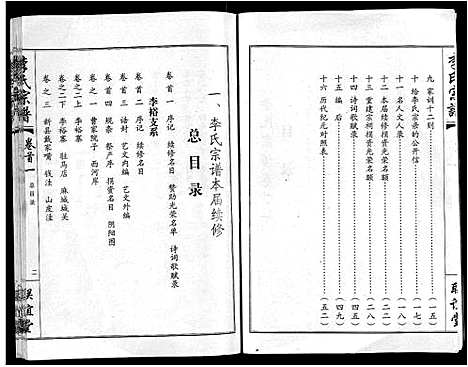 李氏宗谱
九 家训十二则 (一五)
十 给李氏宗亲的公开信 (一七)
十一 名人文人录 (一九)
十二 本届续修捐资光荣名额
十三 重建宗祠捐资光荣名额
十四 诗词歌赋录
十五 编后 (四九)
十六 历代纪元对照表 (五二)
一、李氏宗谱本届续修
总目录
卷首一 序记 续修名目 赞助光荣名单 诗词歌赋录
李裕支系
卷首二 序记 续修名目
卷首三 诰封 艺文内编 艺文外编
卷首四 规条 祭产序 捐资名目 阴阳图
卷之一 曹家院子 西河岸
卷之二上 李裕寨
卷之二下 李裕寨 驻马店 麻城城关
卷之三 新县戴家嘴 钱洼 山庄洼
李氏宗谱
卷首一
总目录
二